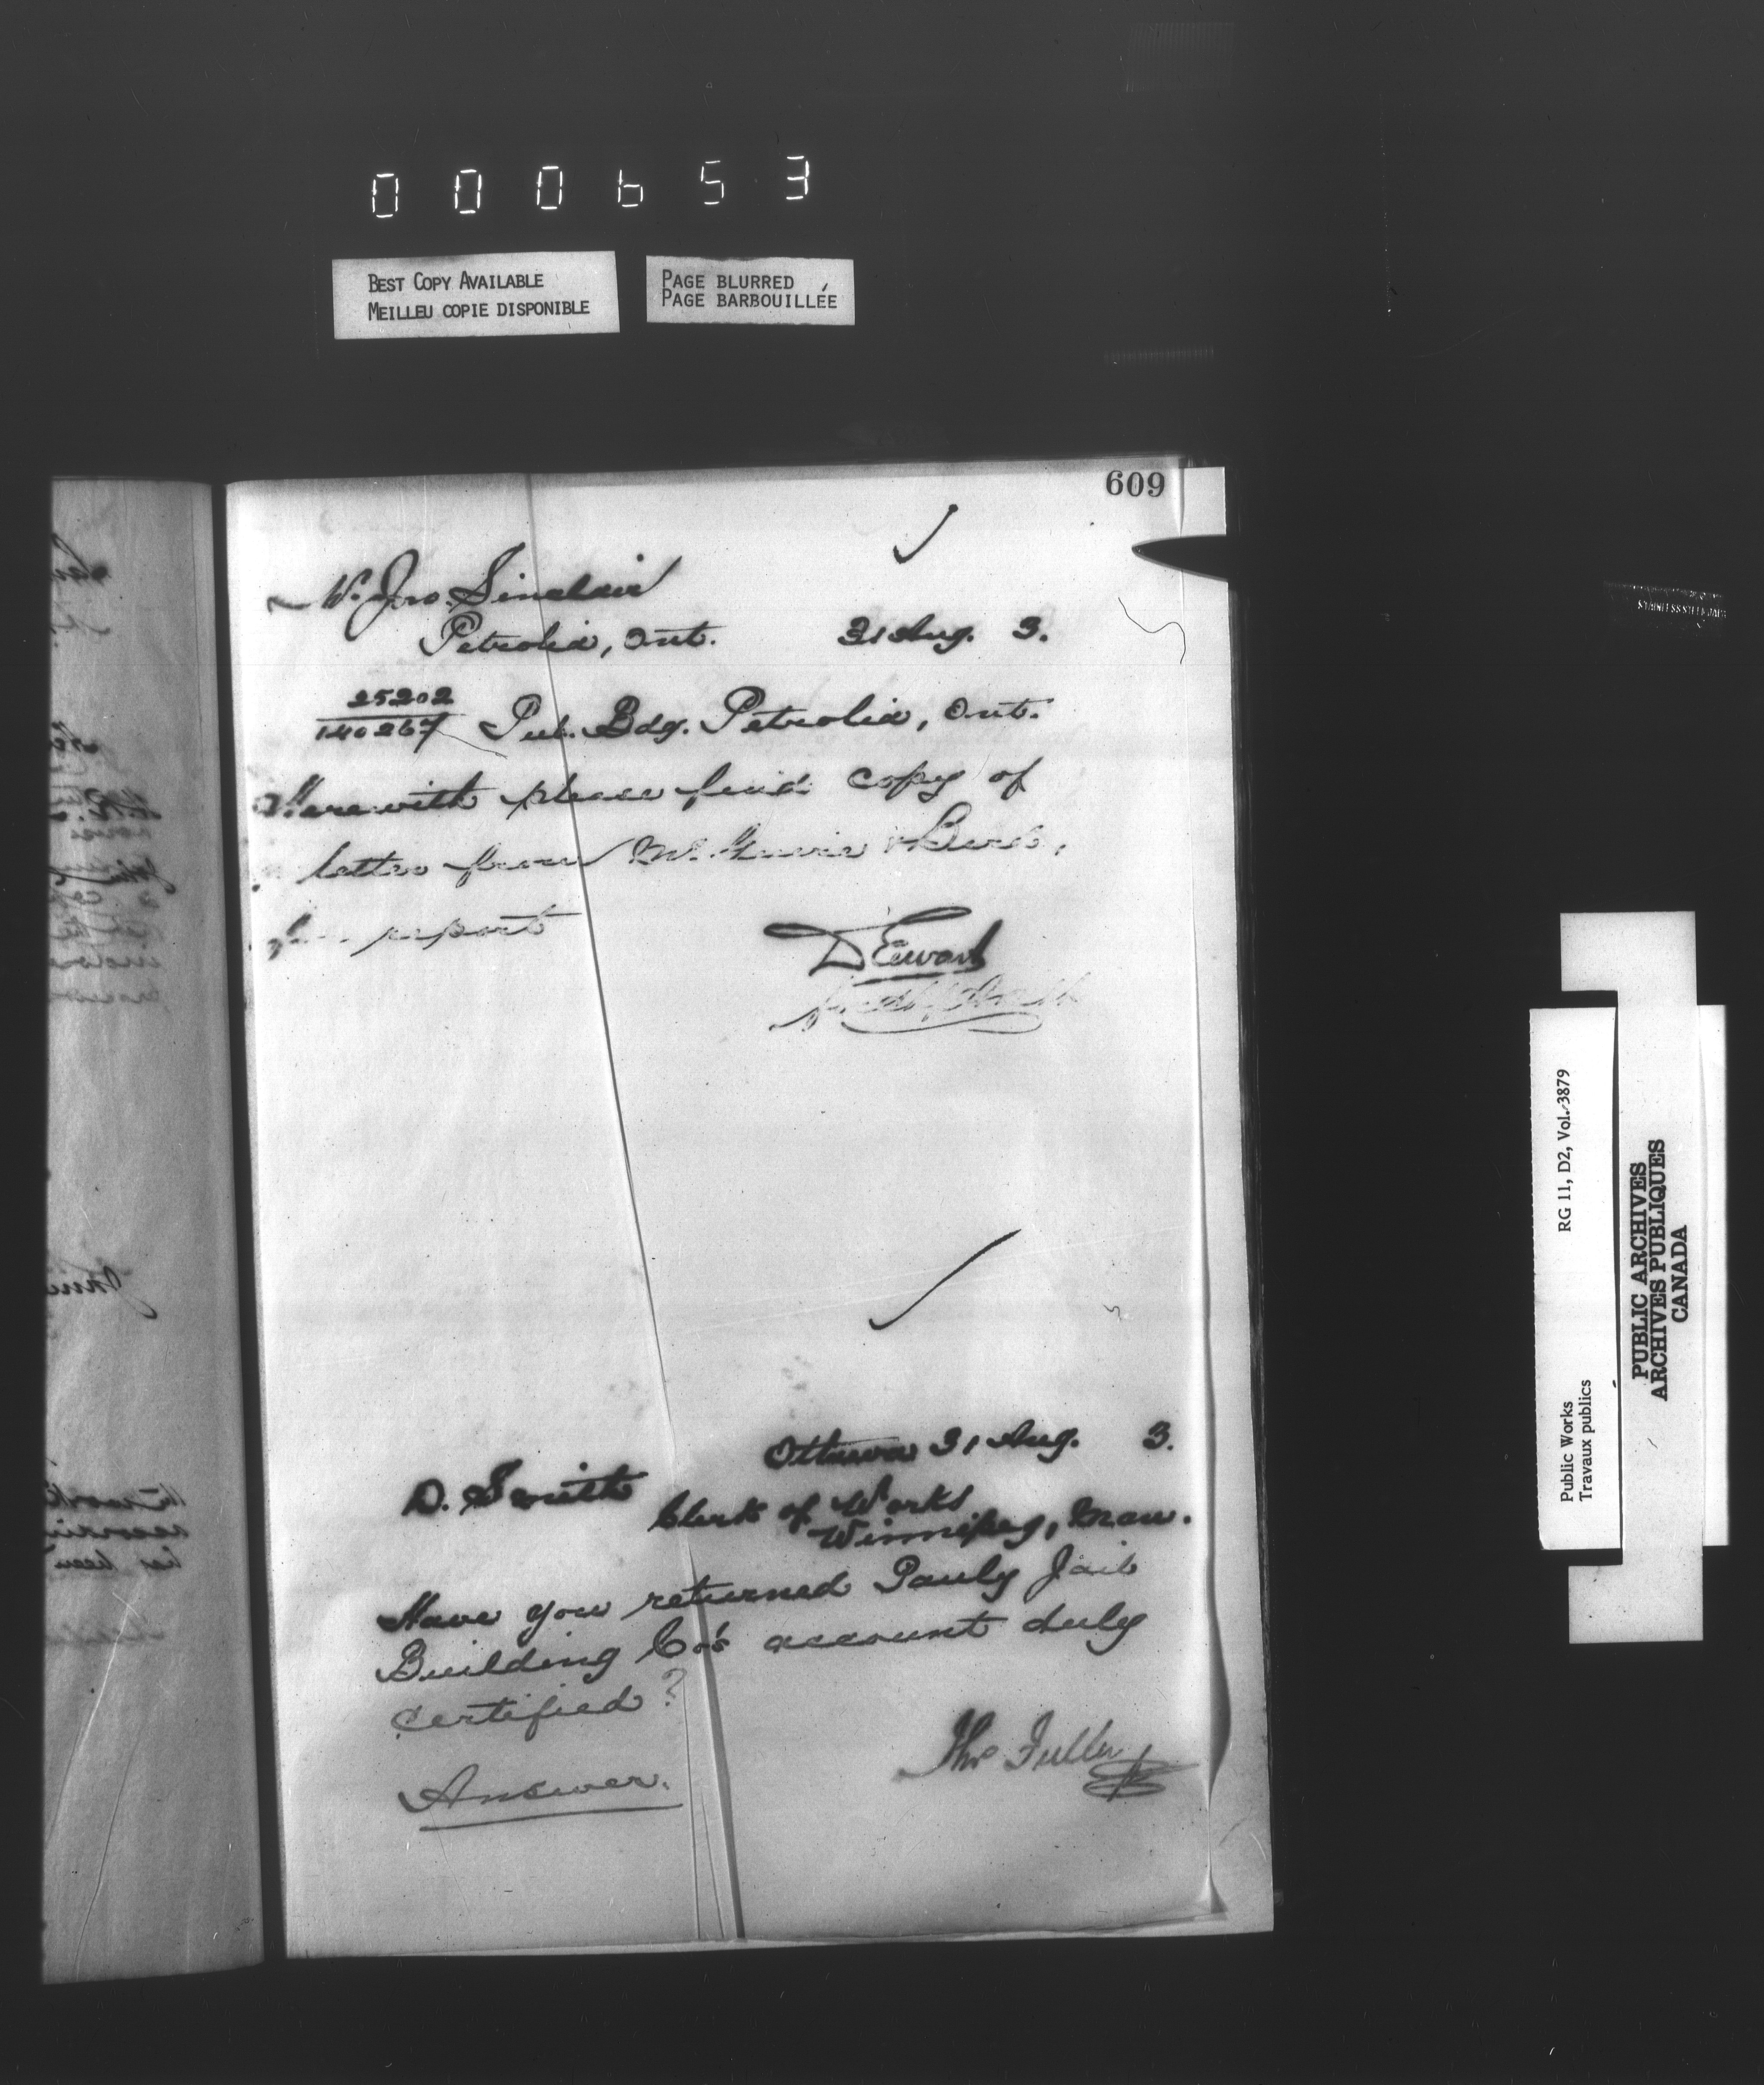 000653
BEST COPY AVAILABLE
MEILLEU COPIE DISPONIBLE
PAGE BLURRED
PAGE BARBOUILLÉE
609
W. Jno. Sinclair
Petrolia, Ont. 31 Aug. 3.
25202
140267 Pub. Bdg. Petrolia, Ont.
Herewith please find copy of
letter from
for report
D Ewart
Ottawa 31 Aug. 3.
D. Smith
Clerk of Works
Winnipeg, Man.
Have you returned Pauly Jail
Building Co's account duly
certified?
Thos Fuller
Answer.
RG 11, D2, Vol. 3879
Public Works
Travaux publics
PUBLIC ARCHIVES
ARCHIVES PUBLIQUES
CANADA